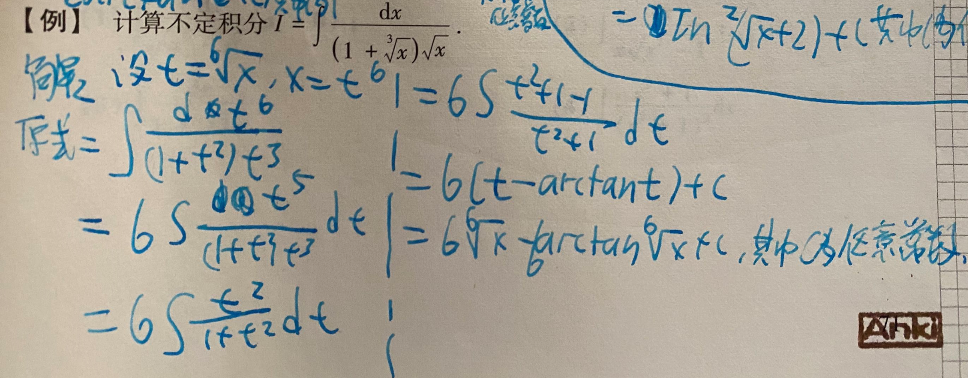 【例】 计算不定积分 I = ∫ dx / ((1 + ∛x)√x) .
任意常数
= In |²√x+2) + C 其中C为任
设 t = ⁶√x, x = t⁶
原式 = ∫ d t⁶ / ((1+t²) t³)
= 6∫ t⁵ / ((1+t²) t³) dt
= 6∫ t² / (1+t²) dt
= 6∫ (t²+1-1) / (t²+1) dt
= 6(t-arctant)+C
= 6⁶√x - 6arctan⁶√x + C, 其中C为任意常数.
Anki